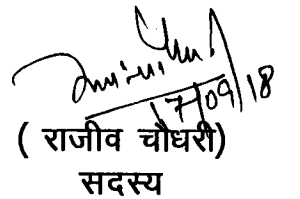 17/09/18
( राजीव चौधरी)
सदस्य